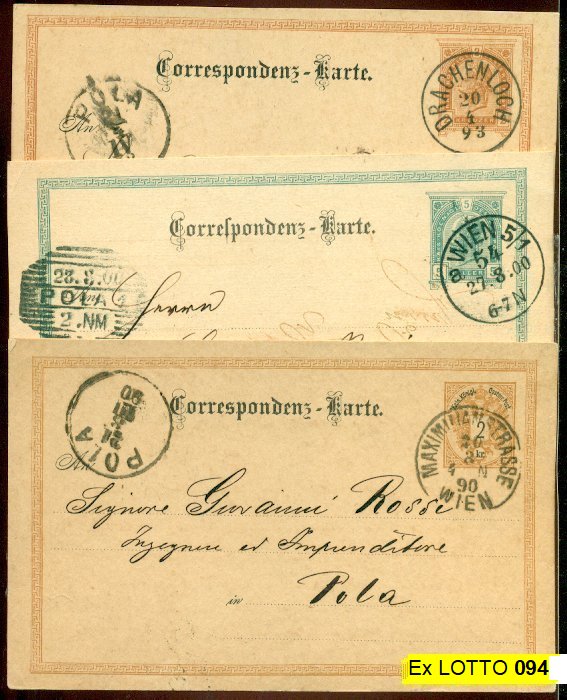 Correspondenz-Karte.
POLA
IV
An
DRACHENLOCH
20
4
93
Correspondenz-Karte.
5
WIEN 5/1
54
27.8.00
6-7 N
28.8.00
POLA 1
2.NM
Herrn
Correspondenz-Karte.
POLA
21
3
90
An
2
kr.
MAXIMILIANSTRASSE
20
3
4 N
90
WIEN
Signore Giovanni Rossi
Ingegnere ed Imprenditore
in Pola
Ex LOTTO 094